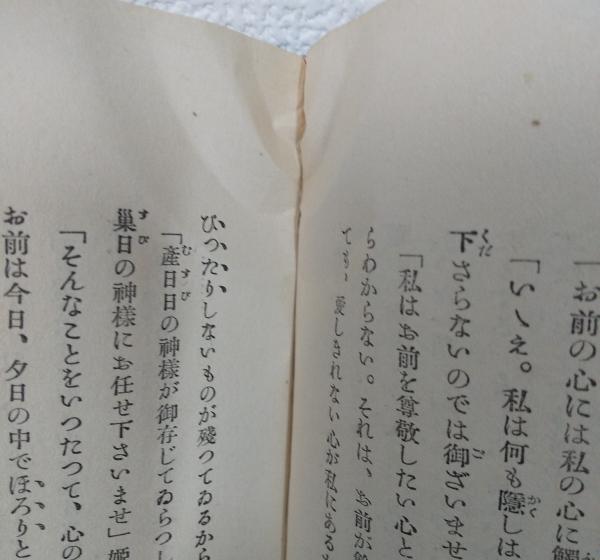 「お前の心には私の心に觸
「いゝえ。私は何も隱しは
下さらないのでは御ざいませ
「私はお前を尊敬したい心と
らわからない。それは、お前が
ても、愛しきれない心が私にあるも
ぴつたりしないものが殘つてゐるから
「產日日の神樣が御存じでゐらつし
巢日の神樣にお任せ下さいませ」姬
「そんなことをいつたつて、心の
お前は今日、夕日の中でほろりと